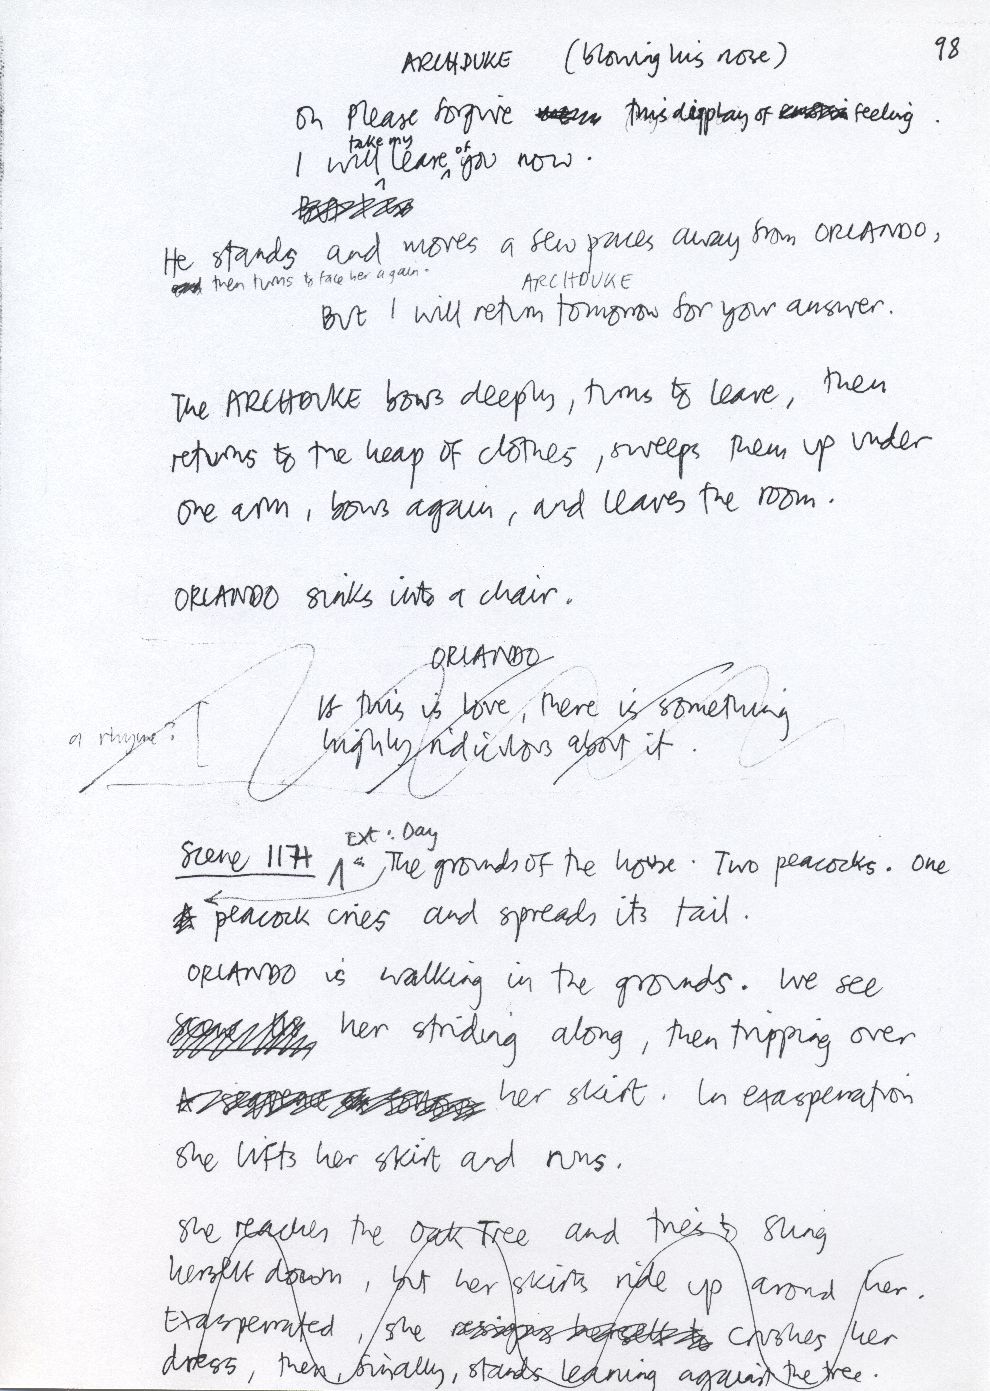 98
ARCHDUKE (blowing his nose)
Oh Please forgive this display of feeling.
take my of
I will leave you now.
He stands and moves a few paces away from ORLANDO,
and then turns to face her again.
ARCHDUKE
But I will return tomorrow for your answer.
The ARCHDUKE bows deeply, turns to leave, then
returns to the heap of clothes, sweeps them up under
one arm, bows again, and leaves the room.
ORLANDO sinks into a chair.
ORLANDO
If this is love, there is something
a rhyme?
highly ridiculous about it.
Ext. Day
Scene 117A The grounds of the house. Two peacocks. One
A peacock cries and spreads its tail.
ORLANDO is walking in the grounds. We see
her striding along, then tripping over
her skirt. In exasperration
she lifts her skirt and runs.
She reaches the Oak Tree and tries to sling
herself down, but her skirts ride up around her.
Exasperrated, she resigns herself to crushes her
dress, then, finally, stands leaning against the tree.